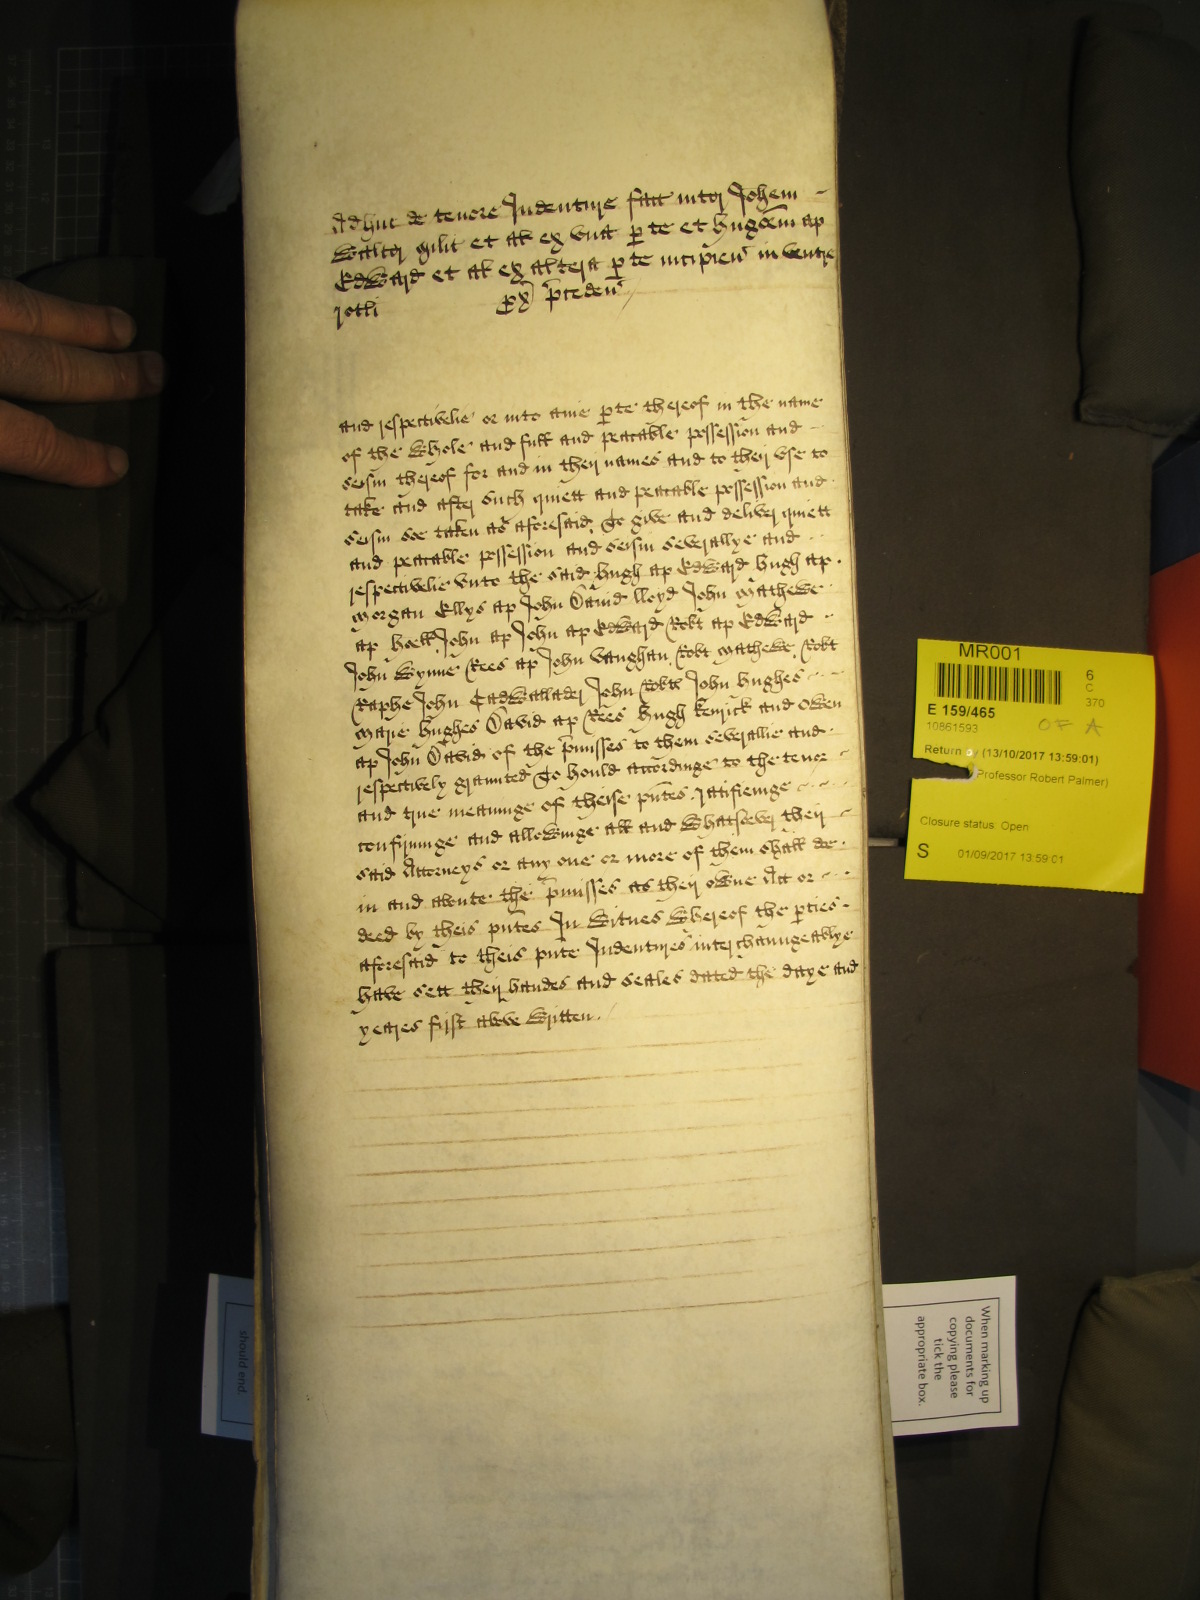 Adhuc de tenore Indenture fact inter Johem
Walter milit et al ex una pte et Hugoem ap
Edward et al ex altera pte incipien in ventre
rotli pxo preceden
and respectivelie or into anie pte thereof in the name
of the whole and full and peacable possession and
seisin thereof for and in their names and to their use to
take and after such quiett and peacable possession and
seisin soe taken as aforesaid, To give and deliver quiett
and peacable possession and seisin severallye and
respectivelie unto the said Hugh ap Edward Hugh ap
Morgan Ellys ap John David lloyd John Mathewe
ap Hoell John ap John ap Edward Robt ap Edward
John Wynne Rees ap John Vaughan, Robt Mathewe, Robt
Raphe John Cadwallader John Robts John Hughes
Marie Hughes David ap Rees Hugh Kenrick and Owen
ap John David of the pmisses to them severallie and
respectively graunted To hould accordinge to the tenor
and true meaninge of theise pntes ratifieinge
confirminge and allowinge all and whatsoever their
said Attorneys or any one or more of them shall doe
in and aboute the pmisses as their owne Act or
deed by theis pntes In Witnes whereof the pties
aforesaid to theis pnte Indentures interchaungeablye
have sett their handes and seales dated the daye and
yeares first above written.
MR001
6
C
370
E 159/465
10861593
OF A
Return by (13/10/2017 13:59:01)
Professor Robert Palmer)
Closure status: Open
S 01/09/2017 13:59:01
should end.
When marking up
documents for
copying please
tick the
appropriate box.